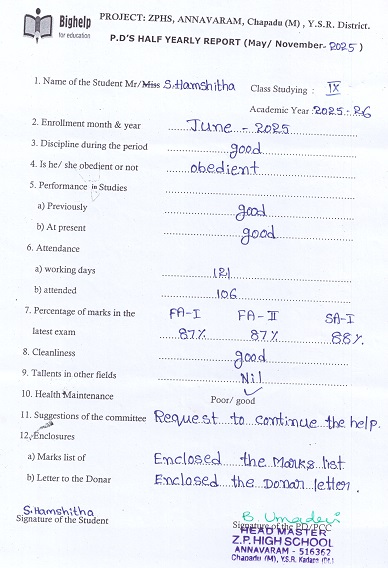 Bighelp
for education
PROJECT: ZPHS, ANNAVARAM, Chapadu (M), Y.S.R. District.
P.D'S HALF YEARLY REPORT (May/ November- 2025)
1. Name of the Student Mr/Miss S.Hamshitha Class Studying : IX
Academic Year : 2025 - 26
2. Enrollment month & year June - 2025
3. Discipline during the period good
4. Is he/ she obedient or not obedient
5. Performance in Studies
a) Previously good
b) At present good
6. Attendance
a) working days 121
b) attended 106
7. Percentage of marks in the FA-I FA-II SA-I
latest exam 87% 87% 88%
8. Cleanliness good
9. Tallents in other fields Nil
10. Health Maintenance Poor/ good
11. Suggestions of the committee Request to continue the help.
12. Enclosures
a) Marks list of Enclosed the Marks list
b) Letter to the Donar Enclosed the Donar letter.
S.Hamshitha B. Umadevi
Signature of the Student Signature of the PD/PCC
HEAD MASTER
Z.P. HIGH SCHOOL
ANNAVARAM - 516362
Chapadu (M), Y.S.R. Kadapa (Dt.)